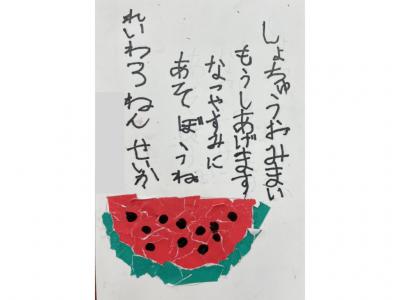 しょちゅうおみまい
もうしあげます
なつやすみに
あそぼうね
れいわろねん せいか